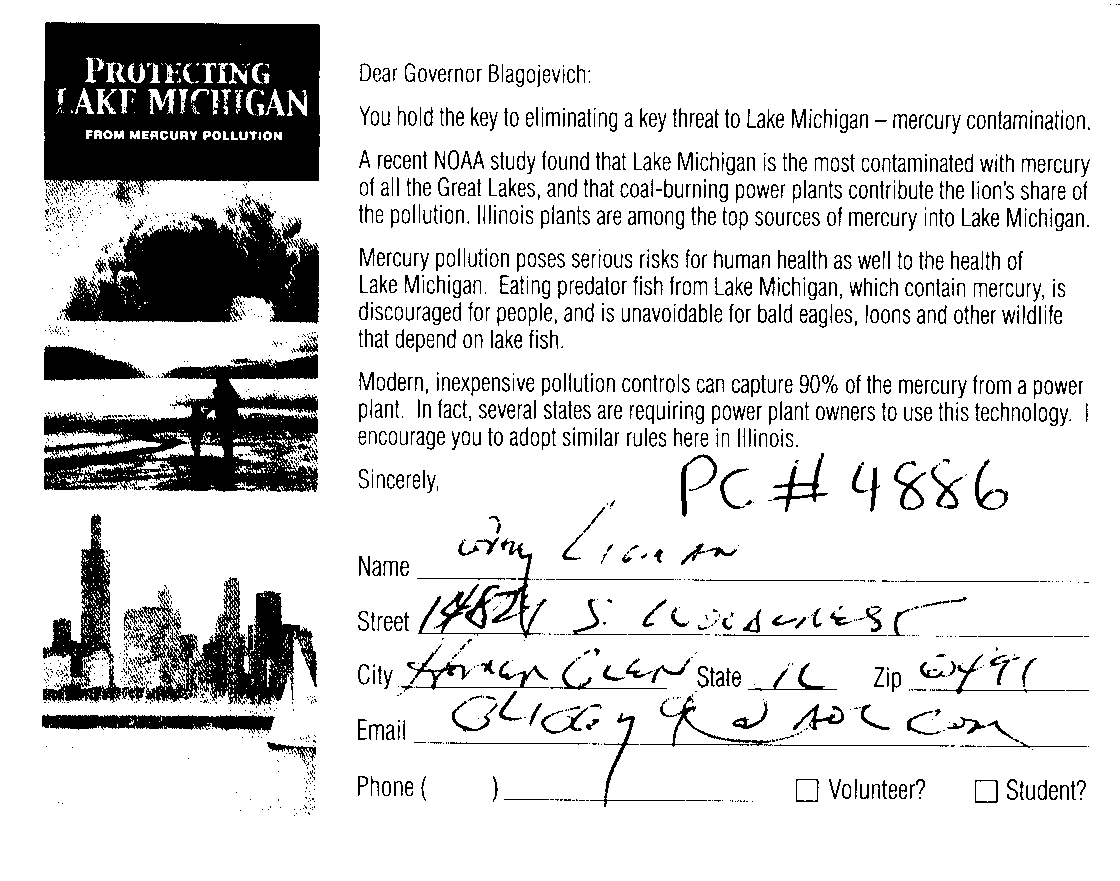 PROTECTING
LAKE MICHIGAN
FROM MERCURY POLLUTION
Dear Governor Blagojevich:
You hold the key to eliminating a key threat to Lake Michigan – mercury contamination.
A recent NOAA study found that Lake Michigan is the most contaminated with mercury
of all the Great Lakes, and that coal-burning power plants contribute the lion's share of
the pollution. Illinois plants are among the top sources of mercury into Lake Michigan.
Mercury pollution poses serious risks for human health as well to the health of
Lake Michigan. Eating predator fish from Lake Michigan, which contain mercury, is
discouraged for people, and is unavoidable for bald eagles, loons and other wildlife
that depend on lake fish.
Modern, inexpensive pollution controls can capture 90% of the mercury from a power
plant. In fact, several states are requiring power plant owners to use this technology. I
encourage you to adopt similar rules here in Illinois.
Sincerely,
PC # 4886
Name
Street S.
City Homer Glen State IL Zip 60491
Email @ AOL COM
Phone ( )
Volunteer? Student?